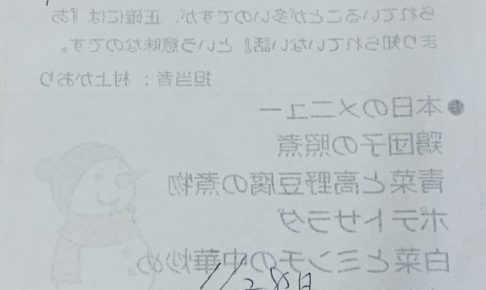 られていることが多いのですが、正確には『あ
まり知られていない話』という意味なのです。
担当者：村上かおり
●本日のメニュー
鶏団子の照煮
青菜と高野豆腐の煮物
ポテトサラダ
白菜とミンチの中華炒め
11/28日